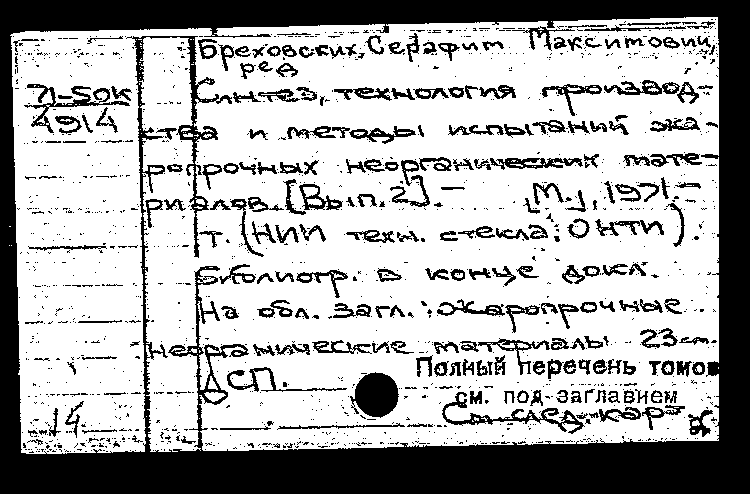 Бреховских, Серафим Максимович,
ред
71-50К
4914
Синтез, технология производ-
ства и методы испытаний жа-
ропрочных неорганических мате-
риалов. [Вып. 2]. — М., 1971.—
т. (НИИ техн. стекла. ОНТИ).
Библиогр. в конце докл.
На обл. загл.: Жаропрочные
неорганические материалы 23см.
ДСП.
Полный перечень томов
см. под заглавием
См. след. кар-
14